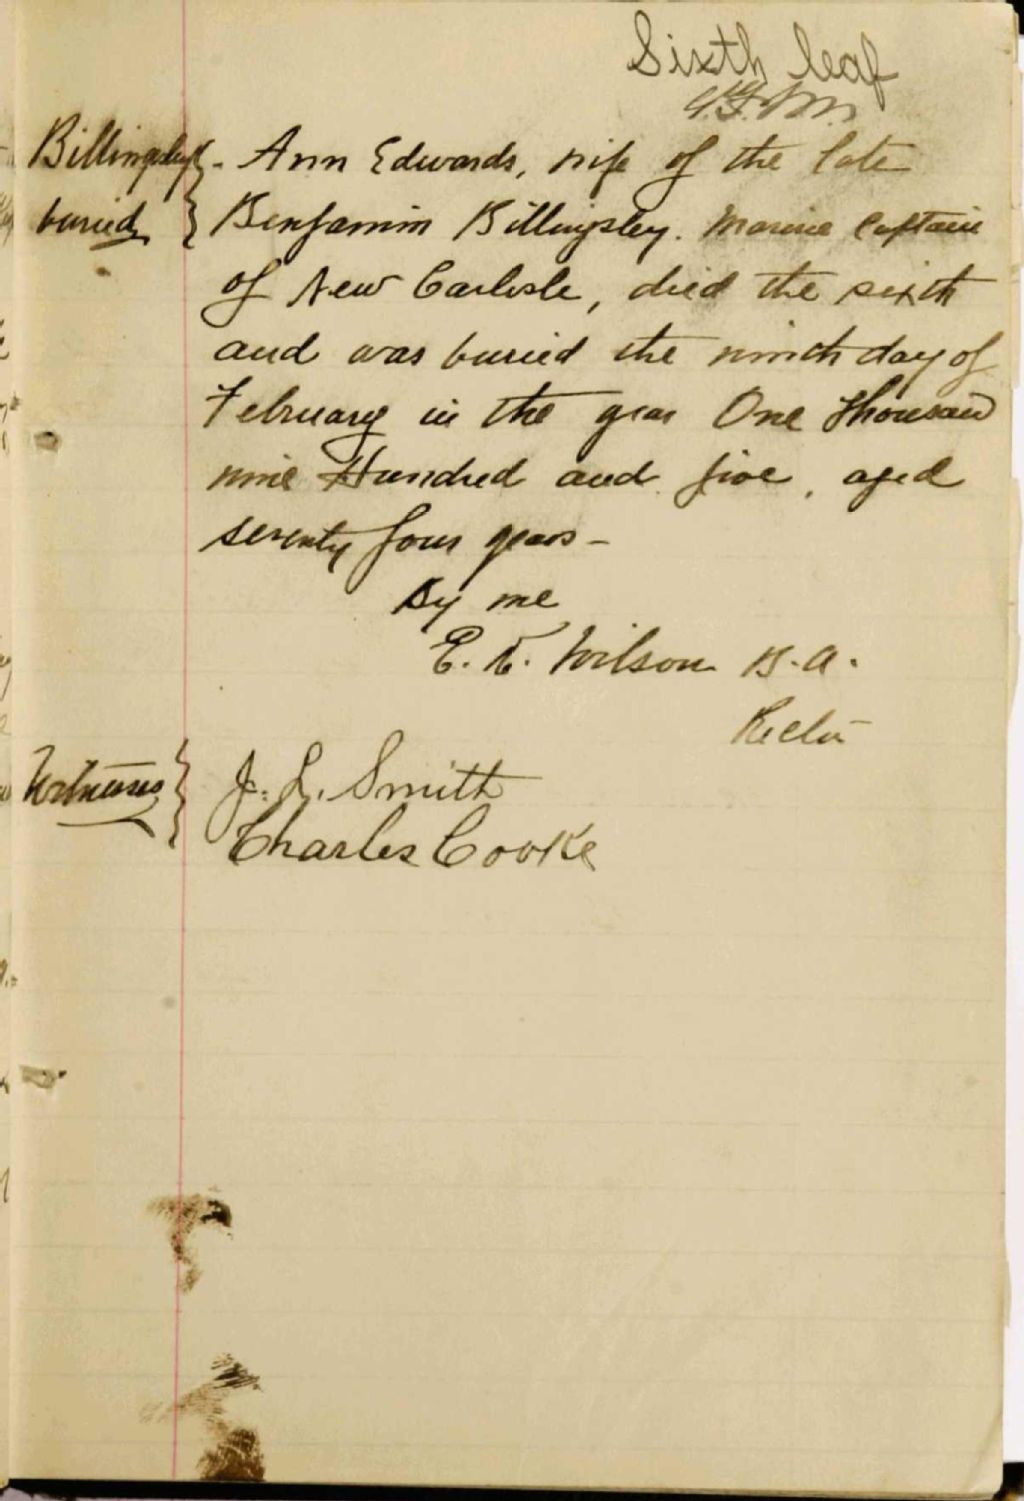 Sixth leaf
Billingsley - Ann Edwards, wife of the late
buried Benjamin Billingsley. Marine Captain
of New Carlisle, died the sixth
and was buried the ninth day of
February in the year One Thousand
nine Hundred and five, aged
seventy four years -
By me
E. E. Wilson B.A.
Rector
Witnesses J. L. Smith
Charles Cooke